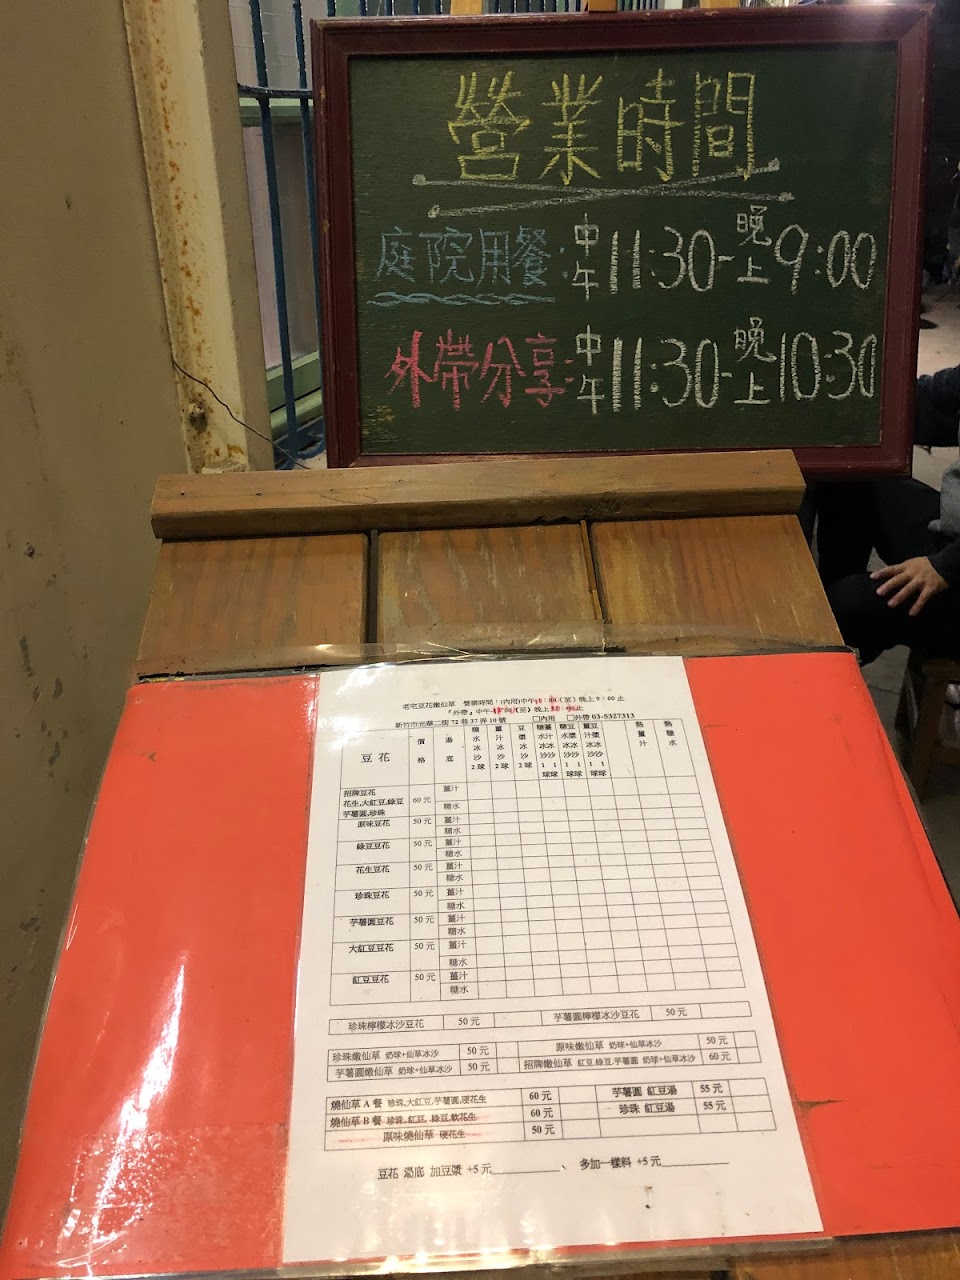 營業時間
庭院用餐:中午11:30-晚上9:00
外帶分享:中午11:30-晚上10:30
老宅豆花嫩仙草 營業時間:(內用)中午 (至)晚上9:00止
「外帶」中午 (至)晚上 止
新竹市光華二街72巷37弄10號 □內用 □外帶 03-5327313
豆花 價格 湯底 糖水冰沙2球 薑汁冰沙2球 豆漿冰沙2球 糖薑水汁冰冰沙沙1 1球球 糖豆水漿冰冰沙沙1 1球球 薑豆汁漿冰冰沙沙1 1球球 熱薑汁 熱糖水
招牌豆花
花生,大紅豆,綠豆
芋薯圓,珍珠 60元 薑汁
糖水
原味豆花 50元 薑汁
糖水
綠豆豆花 50元 薑汁
糖水
花生豆花 50元 薑汁
糖水
珍珠豆花 50元 薑汁
糖水
芋薯圓豆花 50元 薑汁
糖水
大紅豆豆花 50元 薑汁
糖水
紅豆豆花 50元 薑汁
糖水
珍珠檸檬冰沙豆花 50元 芋薯圓檸檬冰沙豆花 50元
珍珠嫩仙草 奶球+仙草冰沙 50元 原味嫩仙草 奶球+仙草冰沙 50元
芋薯圓嫩仙草 奶球+仙草冰沙 50元 招牌嫩仙草 紅豆.綠豆.芋薯圓 奶球+仙草冰沙 60元
燒仙草A餐 珍珠.大紅豆.芋薯圓.硬花生 60元 芋薯圓 紅豆湯 55元
燒仙草B餐 珍珠.紅豆.綠豆.軟花生 60元 珍珠 紅豆湯 55元
原味燒仙草 硬花生 50元
豆花 湯底 加豆漿 +5元____________、 多加一樣料 +5元____________